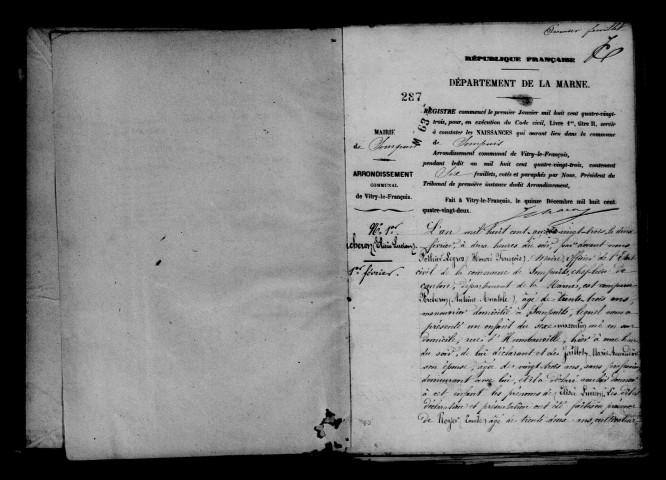 Premier feuillet
RÉPUBLIQUE FRANÇAISE
DÉPARTEMENT DE LA MARNE.
287
REGISTRE commencé le premier Janvier mil huit cent quatre-vingt-
trois, pour, en exécution du Code civil, Livre 1er, titre II, servir
à constater les NAISSANCES qui auront lieu dans la commune
de Sompuis
Arrondissement communal de Vitry-le-François,
pendant ledit an mil huit cent quatre-vingt-trois, contenant
Six feuillets, cotés et paraphés par Nous, Président du
Tribunal de première instance dudit Arrondissement,
Fait à Vitry-le-François, le quinze Décembre mil huit cent
quatre-vingt-deux.
MAIRIE
de Sompuis
ARRONDISSEMENT
COMMUNAL
de Vitry-le-François.
M 63
No 1er
1er février.
L'an mil huit cent quatre-vingt-trois, le deux
février, à deux heures du soir, par devant nous
(Henri François), Maire, officier de l'état
civil de la commune de Sompuis, chef-lieu de
canton, département de la Marne, est comparu
âgé de trente-trois ans,
manouvrier domicilié à Sompuis, lequel nous a
présenté un enfant du sexe masculin né en son
domicile, rue d'Humbauville, hier à une heure
du soir, de lui déclarant et de
son épouse, âgée de vingt-trois ans, sans profession
demeurant avec lui, et il a déclaré vouloir donner
à cet enfant les prénoms de Lucien. Les dites
déclaration et présentation ont été faites en présence
de âgé de trente deux ans,